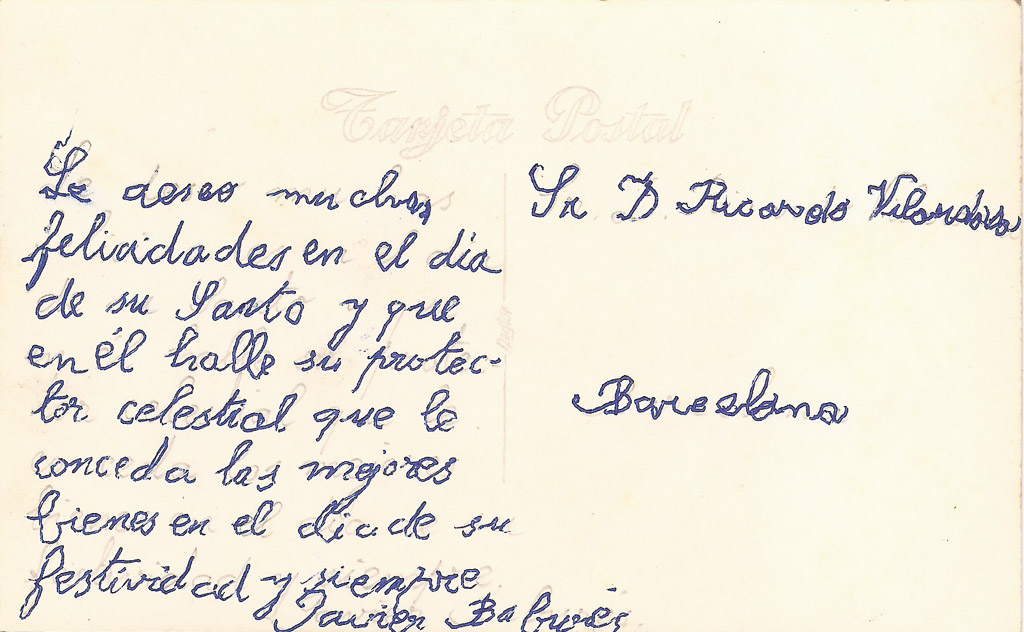 Tarjeta Postal
Le deseo muchas
felicidades en el día
de su Santo y que
en él halle su protec-
tor celestial que le
conceda las mejores
bienes en el dia de su
festividad y siempre
Javier
Sr D Ricardo
Barcelona